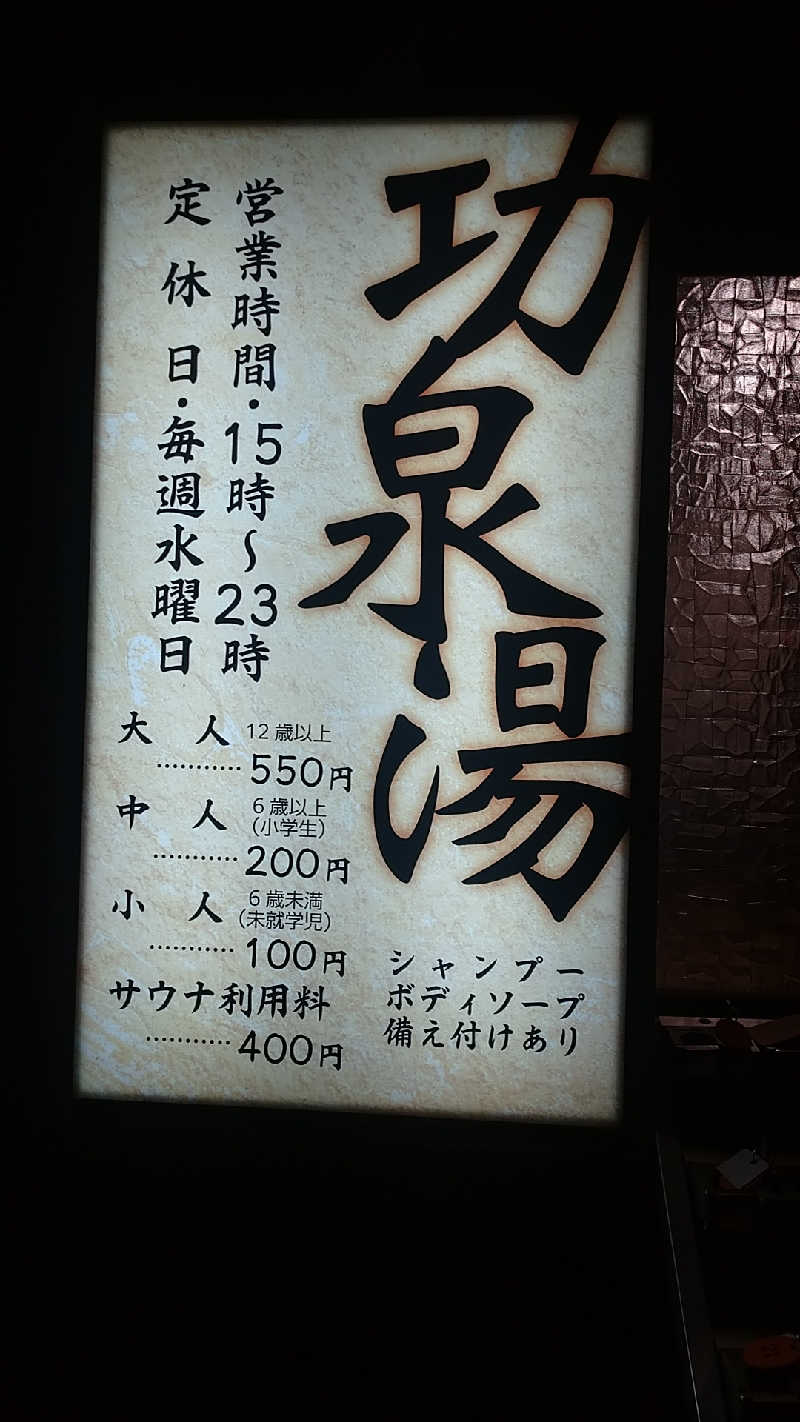 功泉湯
営業時間・15時～23時
定休日・毎週水曜日
大人 12歳以上
…………550円
中人 6歳以上
(小学生)
…………200円
小人 6歳未満
(未就学児)
…………100円
サウナ利用料
…………400円
シャンプー
ボディソープ
備え付けあり